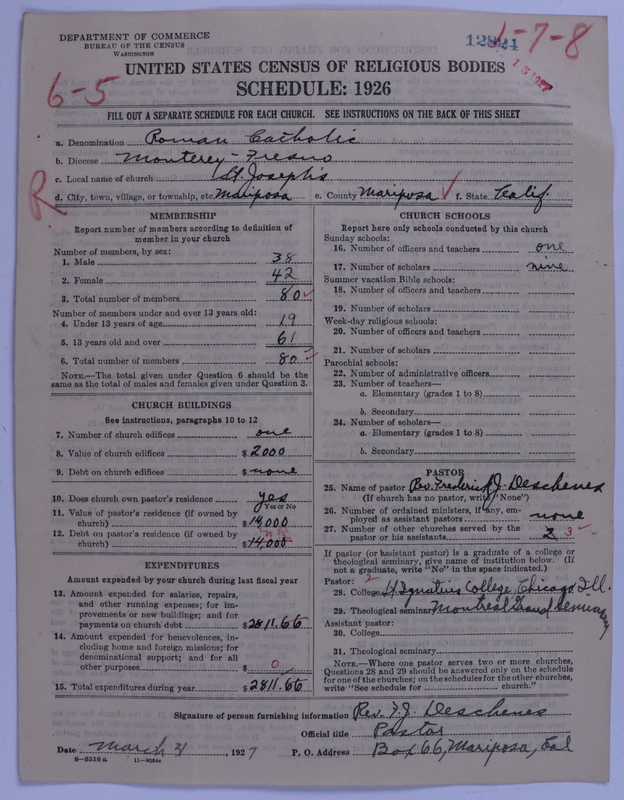 DEPARTMENT OF COMMERCE
BUREAU OF THE CENSUS
WASHINGTON
6-7-8
UNITED STATES CENSUS OF RELIGIOUS BODIES
6-5
SCHEDULE: 1926
FILL OUT A SEPARATE SCHEDULE FOR EACH CHURCH. SEE INSTRUCTIONS ON THE BACK OF THIS SHEET
a. Denomination Roman Catholic
b. Diocese Monterey-Fresno
c. Local name of church St. Joseph's
R
d. City, town, village, or township, etc. Mariposa e. County Mariposa f. State Calif.
MEMBERSHIP
Report number of members according to definition of
member in your church
Number of members, by sex:
1. Male 38
2. Female 42
3. Total number of members 80
Number of members under and over 13 years old:
4. Under 13 years of age 19
5. 13 years old and over 61
6. Total number of members 80
NOTE.—The total given under Question 6 should be
the same as the total of males and females given under Question 3.
CHURCH BUILDINGS
See instructions, paragraphs 10 to 12
7. Number of church edifices one
8. Value of church edifices $2000
9. Debt on church edifices $none
10. Does church own pastor's residence yes
Yes or No
11. Value of pastor's residence (if owned by
church) $14,000
12. Debt on pastor's residence (if owned by
church) $14,000
EXPENDITURES
Amount expended by your church during last fiscal year
13. Amount expended for salaries, repairs,
and other running expenses; for im-
provements or new buildings; and for
payments on church debt $2811.66
14. Amount expended for benevolences, in-
cluding home and foreign missions; for
denominational support; and for all
other purposes $ 0
15. Total expenditures during year $2811.66
CHURCH SCHOOLS
Report here only schools conducted by this church
Sunday schools:
16. Number of officers and teachers one
17. Number of scholars nine
Summer vacation Bible schools:
18. Number of officers and teachers
19. Number of scholars
Week-day religious schools:
20. Number of officers and teachers
21. Number of scholars
Parochial schools:
22. Number of administrative officers
23. Number of teachers—
a. Elementary (grades 1 to 8)
b. Secondary
24. Number of scholars—
a. Elementary (grades 1 to 8)
b. Secondary
PASTOR
25. Name of pastor Rev. Frederick J. Deschenes
(If church has no pastor, write "None")
26. Number of ordained ministers, if any, em-
ployed as assistant pastors none
27. Number of other churches served by the
pastor or his assistants 2 3
If pastor (or assistant pastor) is a graduate of a college or
theological seminary, give name of institution below. (If
not a graduate, write "No" in the space indicated.)
Pastor: 2
28. College St Ignatius College, Chicago Ill.
29. Theological seminary Montreal Grand Seminary
Assistant pastor:
30. College
31. Theological seminary
NOTE.—Where one pastor serves two or more churches,
Questions 28 and 29 should be answered only on the schedule
for one of the churches; on the schedules for the other churches,
write "See schedule for church."
Signature of person furnishing information Rev. F. J. Deschenes
Official title Pastor
Date March 31, 1927 P. O. Address Box 66, Mariposa, Cal